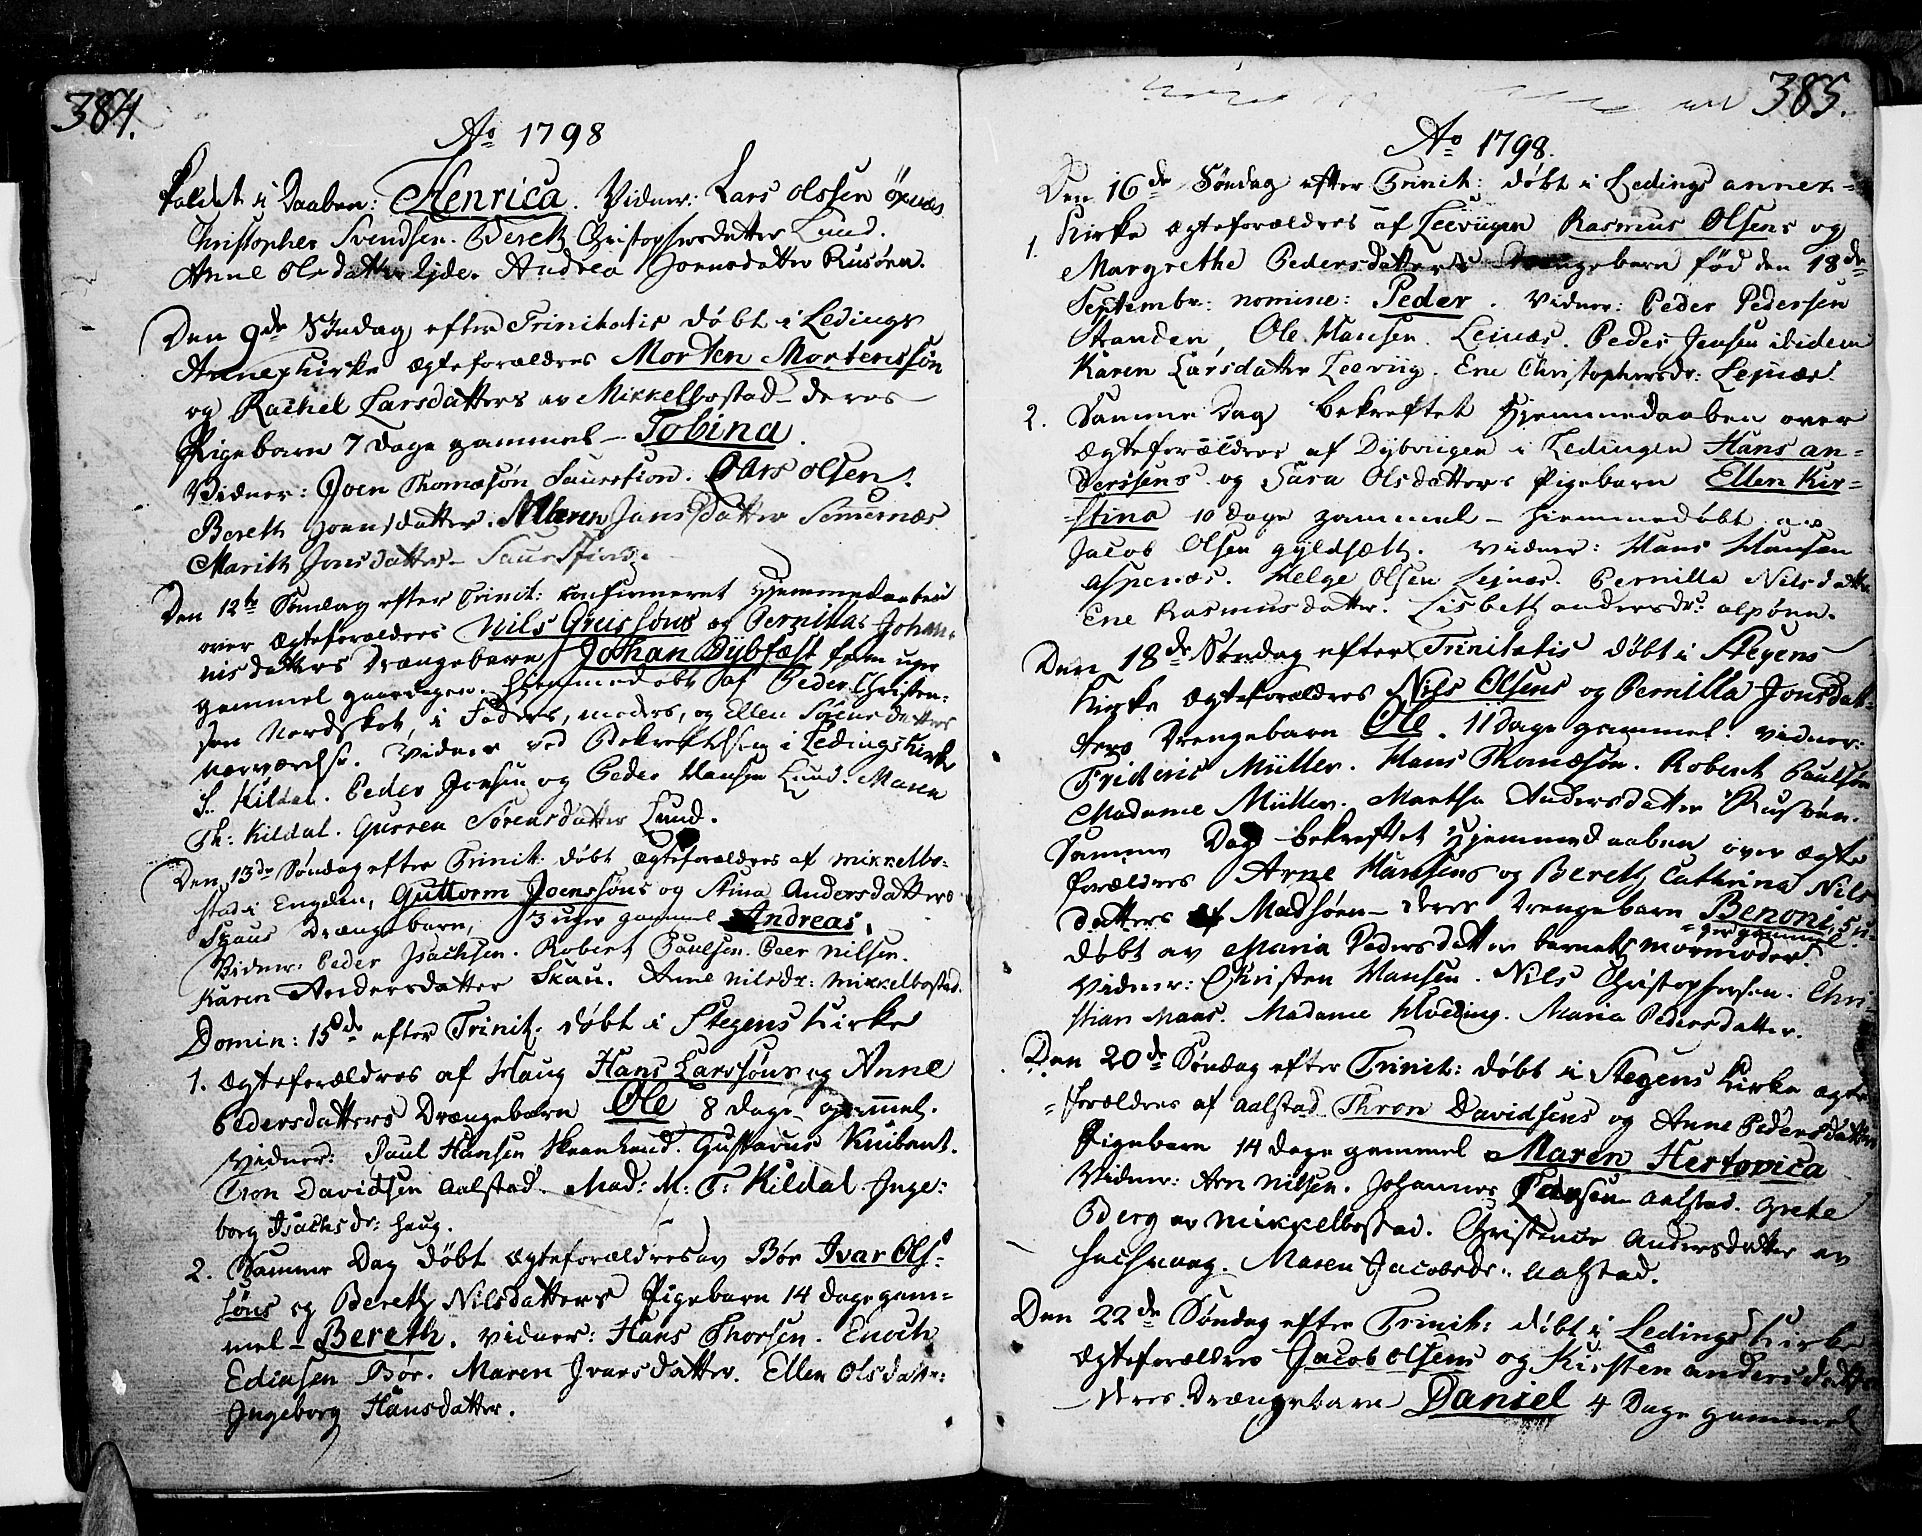 384.
Ao 1798
kaldet i Daaben: Henrica. Vidner: Lars Olssen
Christopher Svendsen. Bereth Christophersdatter Lund.
Anne Olsdatter Ejde. Andrea Joensdatter Rusøen.
Den 9de Søndag efter Trinitatis døbt i Ledings
Annexkirke ægteforældres Morten Mortenssøn
og Rachel Larsdatters av Mikkelbostad deres
Pigebarn 7 dage gammel - Tobina.
Vidner: Joen Thomæsøn Saursfion. Lars Olsen.
Bereth Joensdatter. Maren Jansdatter
Marith Jonsdatter - Saursfiord.
Den 12te Søndag efter Trinit: confirmeret Hjemmedaaben
over ægteforældres Nils Greissøns og Pernillas Johan-
nisdatters Drængebarn Johan Dybfæst fem uger
gammel. Hjemmedøbt af Peder Christen-
sen Nordskot, i Faders, moders, og Ellen Sørensdatters
nærværelse. Vidner ved Bekræftelsen i Ledings Kirke
S. Kildal. Peder Jonsen og Peder Hansen Lund. Maren
Th: Kildal. Gurren Sørensdatter Lund.
Den 13de Søndag efter Trinit: døbt ægteforældres af Mikkelbo-
stad i Engelen, Guttorm Joenssøns og Stina Andersdatters
Skaus Drængebarn, 3 uger gammel Andreas.
Vidner: Peder Isachsen. Robert Paulsen. Peer Nilsen.
Karen Andersdatter Skau. Anne Nilsdr: Mikkelbostad.
Domin: 15de efter Trinit. døbt i Stegens Kirke
1. ægteforældres af Haug Hans Larssøns og Anne
Pedersdatters Drængebarn Ole 8 dage gammel.
Vidner: Paul Hansen Skaanland. Gustavus Knibant.
Tron Davidsen Aalstad. Mad: M: T: Kildal. Inge-
borg Isachsdr: Haug.
2. Samme Dag døbt ægteforældres av Bøe Ivar Ols-
søns og Bereth Nilsdatters Pigebarn 14 dage gam-
mel - Bereth. Vidner: Hans Thorsen. Enoch
Ediasen Bøe. Maren Ivarsdatter. Ellen Olsdatt:
Ingeborg Hansdatter.
385.
Ao 1798.
Den 16de Søndag efter Trinit: døbt i Ledings annex-
1. Kirke ægteforældres af Leevigen Rasmus Olsens og
Margrethe Pedersdatters Drængebarn fød den 18de
Septembr: nomine: Peder. Vidner: Peder Pedersen
Stranden, Ole Hansen Leinæs. Peder Jensen ibidem
Karen Larsdatter Leeviig. Ene Christophersdr: Leinæs.
2. Samme Dag bekreftet Hjemmedaaben over
ægteforældres af Dybvigen i Ledingen Hans an-
derssens og Sara Olsdatters Pigebarn Ellen Kir-
stina 10 dage gammel - Hiemmedøbt av
Jacob Olsen gyldsætt. Vidner: Hans Hansen
Aspenæs. Helge Olsen Leinæs. Pernilla Nilsdatt.
Ene Rasmusdatter. Lisbeth andersdr: alpøen.
Den 18de Søndag efter Trinitatis døbt i Stegens
Kirke ægteforældres Nils Olsens og Pernilla Jonsdat-
ters Drengebarn Ole. 11 Dage gammel. Vidner:
Frideric Müller. Hans Thomæsøn. Robert Paulsøn
Madame Müller. Martha Andersdatter Rusøen.
Samme Dag bekreftet Hjemmedaaben over ægte
forældres Arne Hansens og Bereth Cathrina Nils
datters af Madsøen - deres Drengebarn Benoni, 5 u-
ger gammel.
døbt av Maria Pedersdatter barnets mormoder.
Vidner: Christen Hansen. Nils Christophersen. Chri-
stian Maas. Madame Hveding. Maria Pedersdatter.
Den 20de Søndag efter Trinit: døbt i Stegens Kirke ægte
forældres af Aalstad Thron Davidsens og Anne Pedersdatters
Pigebarn 14 dage gammel Maren Hertovica
Vidner: Arn Nilsen. Johannes Aalstad. Grete
Berg av Mikkelbostad. Christence Andersdatter av
Maren Jacobsdr: Aalstad.
Den 22de Søndag efter Trinit: døbt i Ledings Kirke
ægteforældres Jacob Olsens og Kirsten andersdatters
deres Drængebarn Daniel 4 Dage gammel